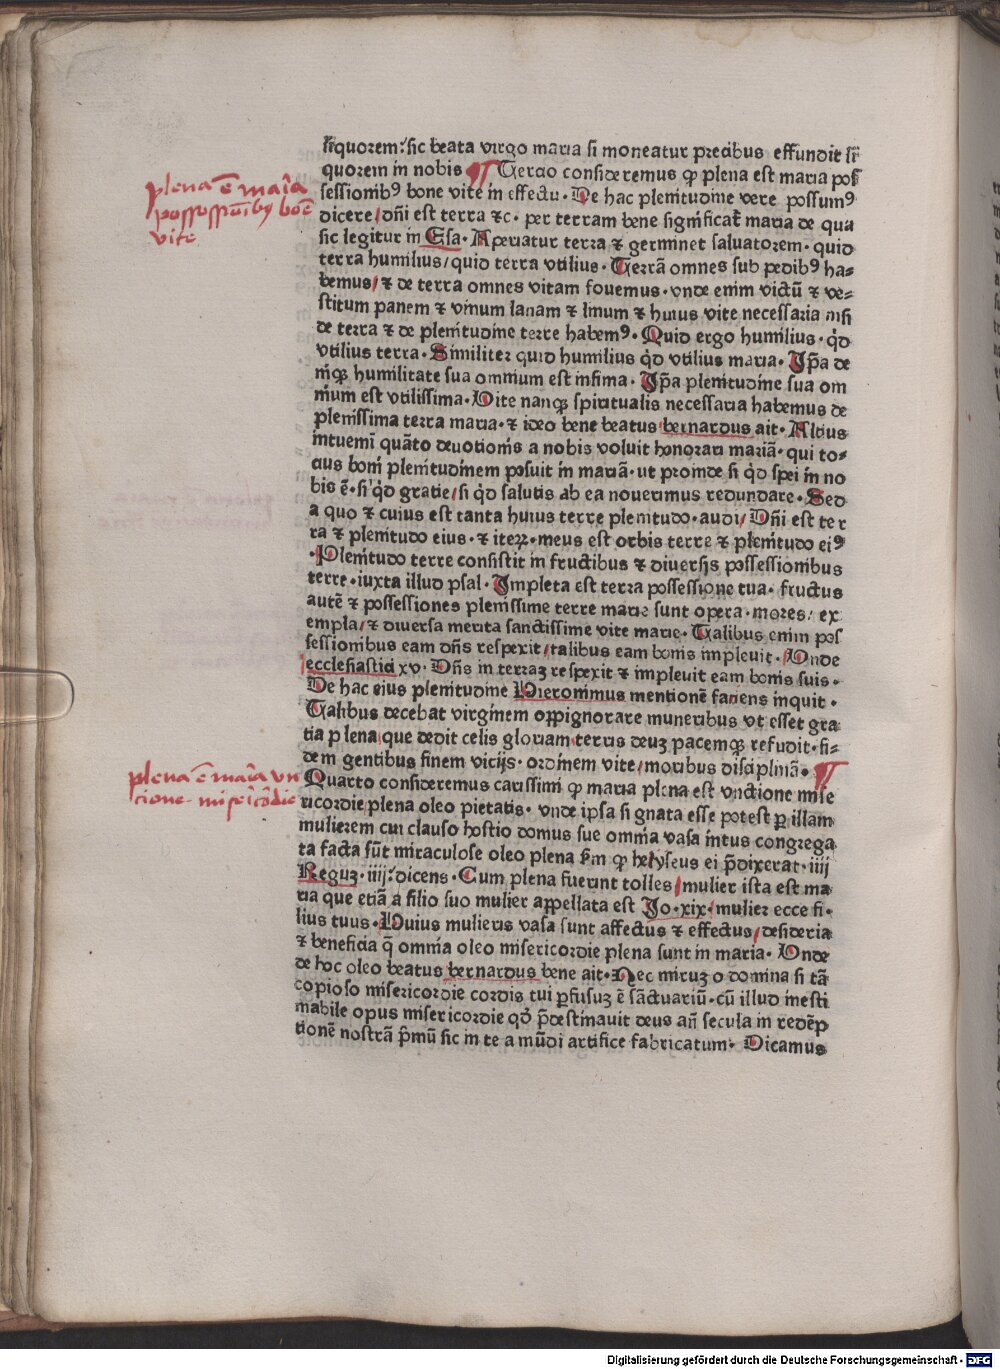 plena ē maīa
possessiōibꝯ boē
vite
liquorem: sic beata virgo maria si moneatur precibus effundit li
quorem in nobis ¶ Tercio consideremus ꝙ plena est maria pos
sessionibꝯ bone vite in effectu · De hac plenitudine vere possumꝯ
dicere / dñi est terra ⁊c · per terram bene significat̄ maria de qua
sic legitur in Esa · Aperiatur terra ⁊ germinet saluatorem · quid
terra humilius / quid terra vtilius · Terrā omnes sub pedibꝯ ha⸗
bemus / ⁊ de terra omnes vitam fouemus · vnde enim victū ⁊ ve⸗
stitum panem ⁊ vinum lanam ⁊ linum ⁊ huius vite necessaria nisi
de terra ⁊ de plenitudine terre habemꝯ · Quid ergo humilius · qd̄
vtilius terra · Similiter quid humilius qd̄ vtilius maria · Ip̄a de
niqꝫ humilitate sua omnium est infima · Ip̄a plenitudine sua om
nium est vtilissima · Vite nanqꝫ spiritualis necessaria habemus de
plenissima terra maria · ⁊ ideo bene beatus bernardus ait · Altius
intuemī quāto deuotionis a nobis voluit honorari mariā · qui to⸗
cius boni plenitudinem posuit in mariā · ut proinde si qd̄ spei in no
bis ē · si qd̄ gratie / si qd̄ salutis ab ea nouerimus redundare · Sed
a quo ⁊ cuius est tanta huius terre plenitudo · audi / Dñi est ter
ra ⁊ plenitudo eius · ⁊ iteꝝ · meus est orbis terre ⁊ plenitudo eiꝯ
· Plenitudo terre consistit in fructibus ⁊ diuersis possessionibus
terre · iuxta illud psal · Impleta est terra possessione tua · fructus
autē ⁊ possessiones plenissime terre marie sunt opera · mores / ex
empla / ⁊ diuersa merita sanctissime vite marie · Talibus enim pos
sessionibus eam dñs respexit / talibus eam bonis impleuit · Vnde
ecclesiastici xv · Dñs in terraꝫ respexit ⁊ impleuit eam bonis suis ·
De hac eius plenitudine Hieronimus mentionē faciens inquit ·
Talibus decebat virginem oppignorare muneribus vt esset gra
tia plena / que dedit celis gloriam terris deuꝫ pacemqꝫ refudit · fi⸗
dem gentibus finem viciis · ordinem vite / moribus disciplinā · ¶
plena ē maīa vn
ctione miserīcōdie
Quarto consideremus carissimi ꝙ maria plena est vnctione mise
ricordie plena oleo pietatis · vnde ipsa signata esse potest ꝑ illam
mulierem cui clauso hostio domus sue omnia vasa intus congrega
ta facta sūt miraculose oleo plena scd̄m ꝙ helyseus ei p̄dixerat · iiij
Reguꝫ · iiij: dicens · Cum plena fuerint tolles / mulier ista est ma
ria que etiā a filio suo mulier appellata est Jo · xix · / mulier ecce fi·
lius tuus · Huius mulieris vasa sunt affectus ⁊ effectus / desideria
⁊ beneficia q̄ omnia oleo misericordie plena sunt in maria · Vnde
de hoc oleo beatus bernardus bene ait · Nec miruꝫ o domina si tā
copioso misericordie cordis tui ꝑfusuꝫ ē sāctuariū · cū illud inesti
mabile opus misericordie qd̄ p̄destinauit deus añ secula in redēp
tionē nostrā p̄mū sic in te a mūdi artifice fabricatum · Dicamus
Digitalisierung gefördert durch die Deutsche Forschungsgemeinschaft - DFG